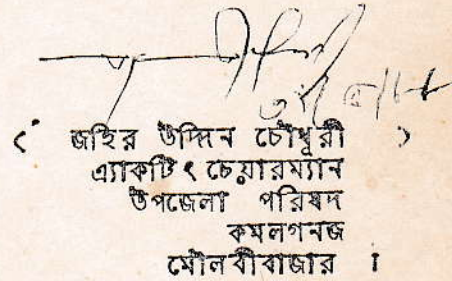 ( জহির উদ্দিন চৌধুরী )
এ্যাকটিং চেয়ারম্যান
উপজেলা পরিষদ
কমলগনজ
মৌলবীবাজার ।